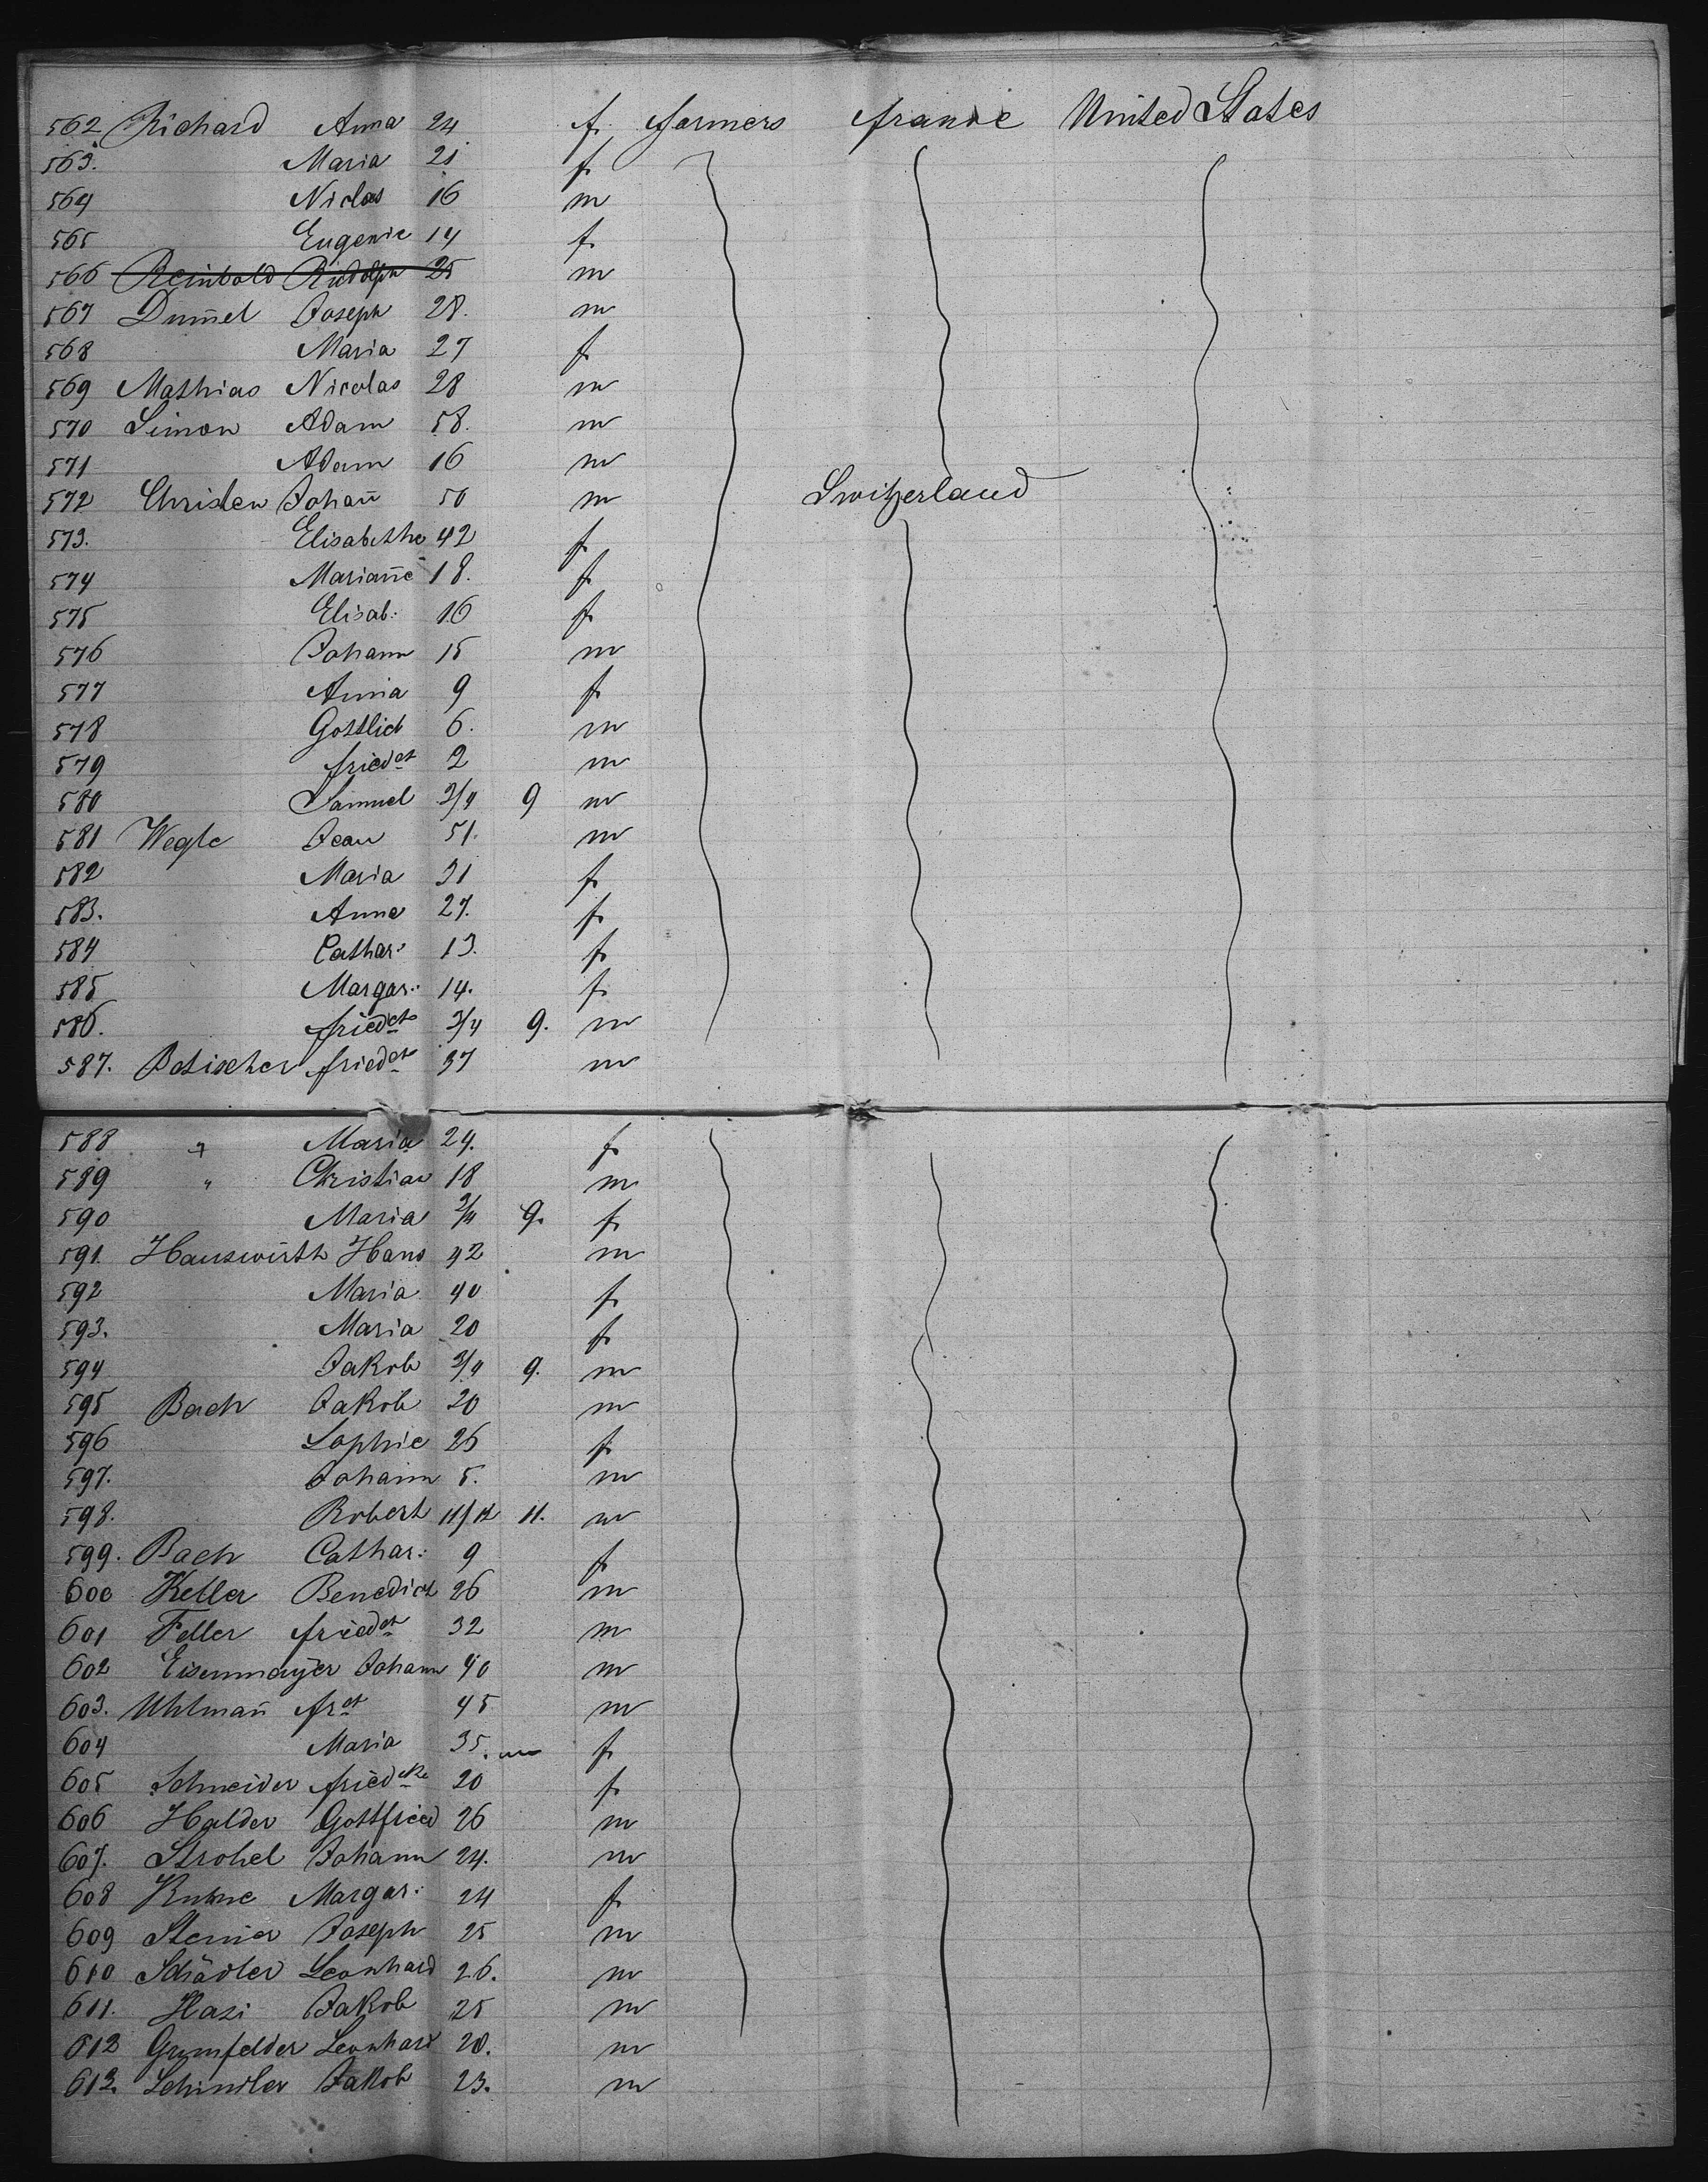 562 Richard Anna 24 f. farmers france United States
563. Maria 21 f
564 Niclas 16 m
565 Eugenie 14 f.
566 Reinbold Rudolph 25 m
567 Dum̄el Joseph 28. m
568 Maria 27 f
569 Mathias Nicolas 28 m
570 Simon Adam 58. m
571 Adam 16 m
572 Christen Johan̄ 50 m Switzerland
573. Elisabethe 42 f
574 Marian̄e 18. f
575 Elisab: 16 f
576 Johann 15 m
577 Anna 9 f
578 Gottlieb 6. m
579 fried ch 2 m
580 Samuel 3/4 9 m
581 Wegle Jean 51. m
582 Maria 31 f
583. Anna 27. f
584 Cathar: 13. f
585 Margar: 14. f
586. fried ch 3/4 9. m
587. Betischer fried ch 37 m
588 " Maria 24. f
589 " Christian 18 m
590 Maria 3/4 9. f
591. Hauswirth Hans 42 m
592 Maria 40 f
593. Maria 20 f
594 Jakob 3/4 9. m
595 Bach Jakob 20 m
596 Sophie 26 f
597. Johann 5. m
598. Robert 11/12 11. m
599. Bach Cathar: 9 f
600 Keller Benedict 26 m
601 Feller fried ch 32 m
602 Eisenmayer Johann 40 m
603. Uhlman̄ fr ch 45 m
604 Maria 35. f
605 Schneider fried cke 20 f
606 Halder Gottfried 26 m
607. Strohel Johann 24. m
608 Margar: 24 f
609 Joseph 25 m
610 Schädler Leonhard 26. m
611. Hasi Jakob 25 m
612 Leonhard 20. m
613. Schindler Jakob 23. m